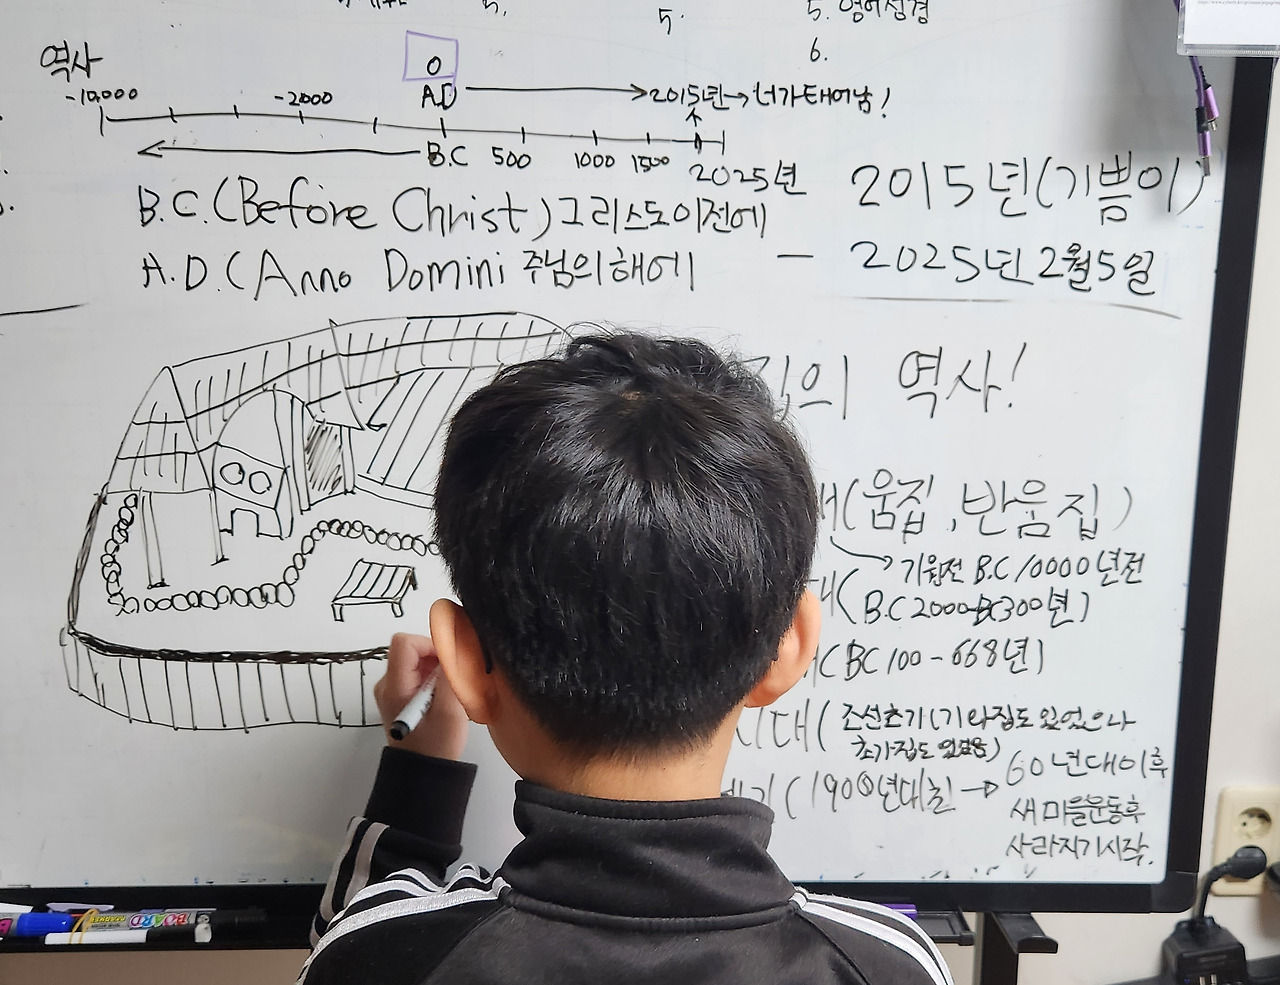 5.
5.
5. 영어성경
6.
역사
0
-10,000
-2000
A.D
2015년→너가태어남!
B.C 500 1000 1500
2025년
B.C.(Before Christ)그리스도이전에
A.D.(Anno Domini 주님의해에
2015년(기쁨이)
— 2025년 2월5일
집의 역사!
(움집,반움집)
기원전 B.C 10000년전
(B.C 2000-BC300년)
(BC 100-668년)
시대(조선초기(기와집도 있었으나
초가집도 있었음)
(1900년대초 → 60년대이후
새마을운동후
사라지기시작.
BOARD